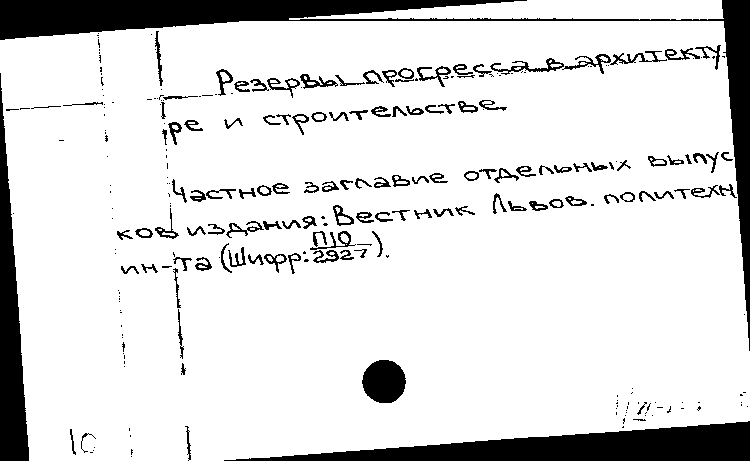 Резервы прогресса в архитекту
ре и строительстве.
Частное заглавие отдельных выпус
ков издания: Вестник Львов. политехн
ин-та (Шифр: П10/2927).
10